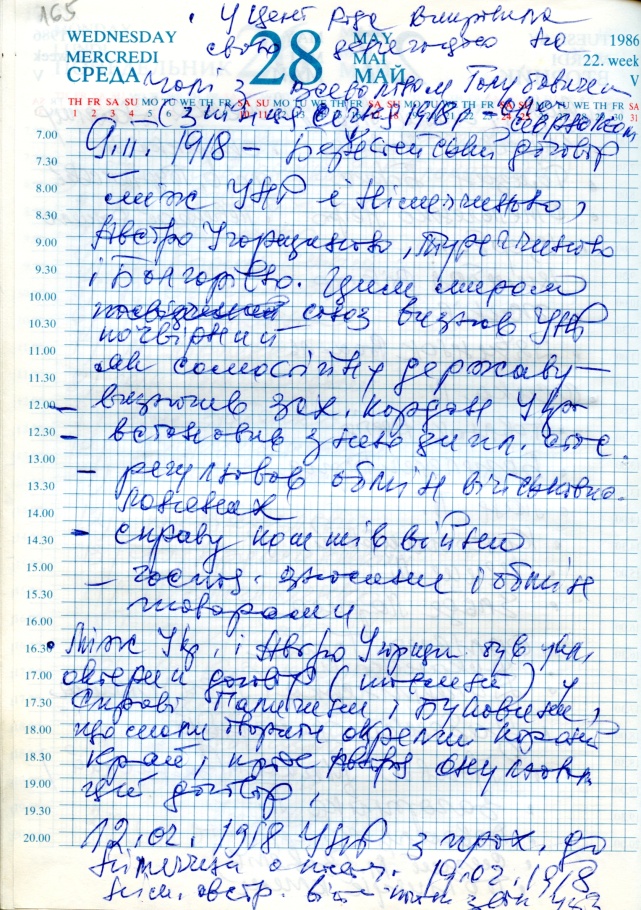 165
У Цент Рада вишровила
свою делегацію на
WEDNESDAY MERCREDI СРЕДА
28
MAY MAI МАЙ
1986 22. week V
чолі з Всеволодом Голубовичем
TH FR SA SU MO TU WE TH FR SA SU MO TU WE TH FR SA SU MO TU WE TH FR SA SU MO TU WE TH FR SA
1 2 3 4 5 6 7 8 9 10 11 12 13 14 15 16 17 18 19 20 21 22 23 24 25 26 27 28 29 30 31
(з 1918р
7.00
9.II. 1918 – Берестейський договір
7.30
між УНР і Німеччиною,
8.00
8.30
Австро Угорщиною, Туреччиною
9.00
9.30
і Болгарією. Цим миром
10.00
союз визнав УНР
10.30
почвірний
11.00
як самостійну державу –
11.30
визначив зах. кордон Укр
12.00
– встановив дипл. стос.
12.30
– регулював обмін військово-
13.00
полонених
13.30
14.00
– справу коштів війни
14.30
– господ. зносини і обмін
15.00
15.30
товарами
16.00
Між Укр. і Австро Угорщ. був укл.
16.30
17.00
договір (таємний) у
17.30
справі Галичини і Буковини,
18.00
що мали творити окремий корон.
18.30
край, і
19.00
цей договір,
19.30
20.00
12.02. 1918 УНР з прох. до
Німеччини 19.02.1918